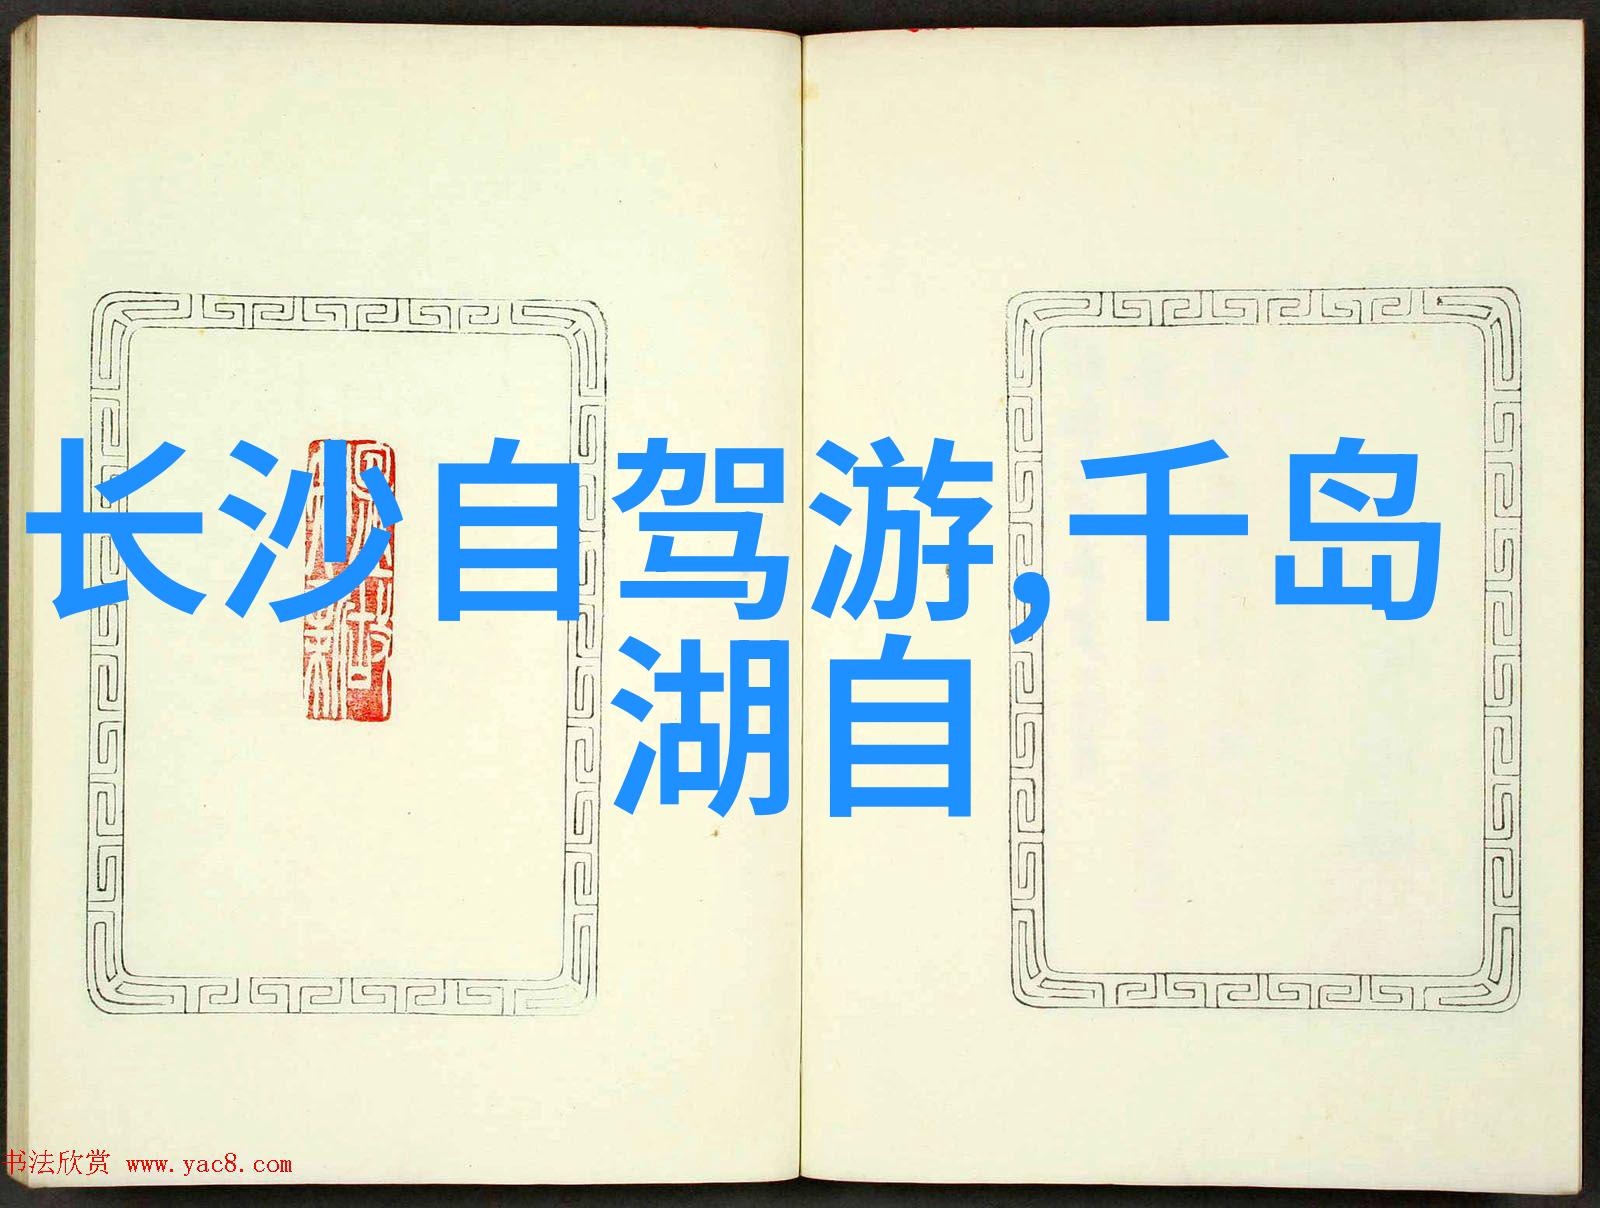 长沙自驾游,千岛
湖自
书法欣赏 www.yac8.com